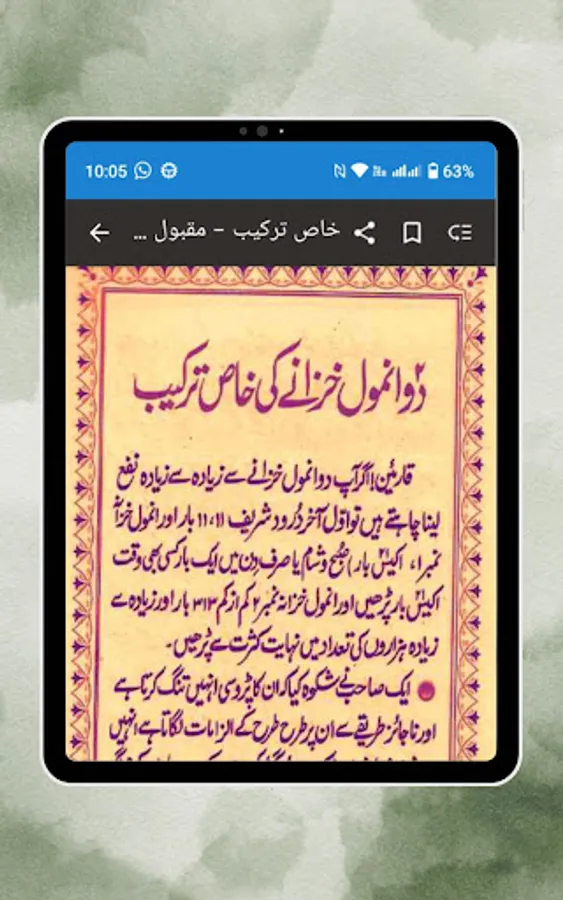 10:05
63%
خاص ترکیب – مقبول ...
دو انمول خزانے کی خاص ترکیب
قارئین! اگر آپ دو انمول خزانے سے زیادہ سے زیادہ نفع
لینا چاہتے ہیں تو اوّل آخر درود شریف ۱۱،۱۱ بار اور انمول خزانہ
نمبر ۱، اکیس بار) صبح و شام یا صرف دن میں ایک بار کسی بھی وقت
اکیس بار پڑھیں اور انمول خزانہ نمبر ۲ کم از کم ۳۱۳ بار اور زیادہ سے
زیادہ ہزاروں کی تعداد میں نہایت کثرت سے پڑھیں۔
ایک صاحب نے شکوہ کیا کہ ان کا پڑوسی انہیں تنگ کرتا ہے
اور ناجائز طریقے سے ان پر طرح طرح کے الزامات لگاتا ہے انہیں